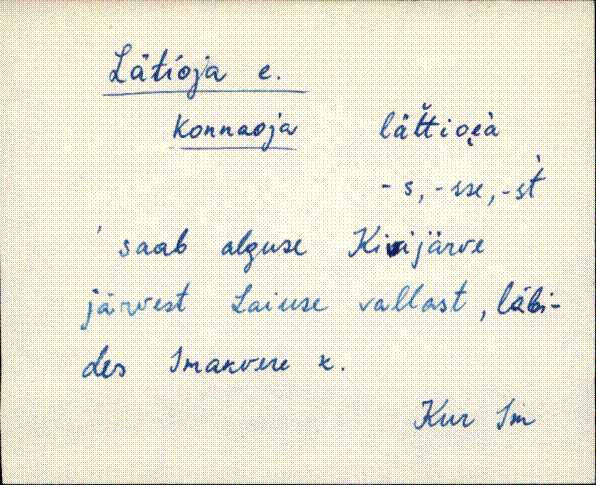 Lätioja e.
Konnaoja lät̆tioi̯à
-s, -sse, -st̀
saab alguse Kivijärve
järvest Laiuse vallast, läbi-
des Imukvere k.
Kur Im